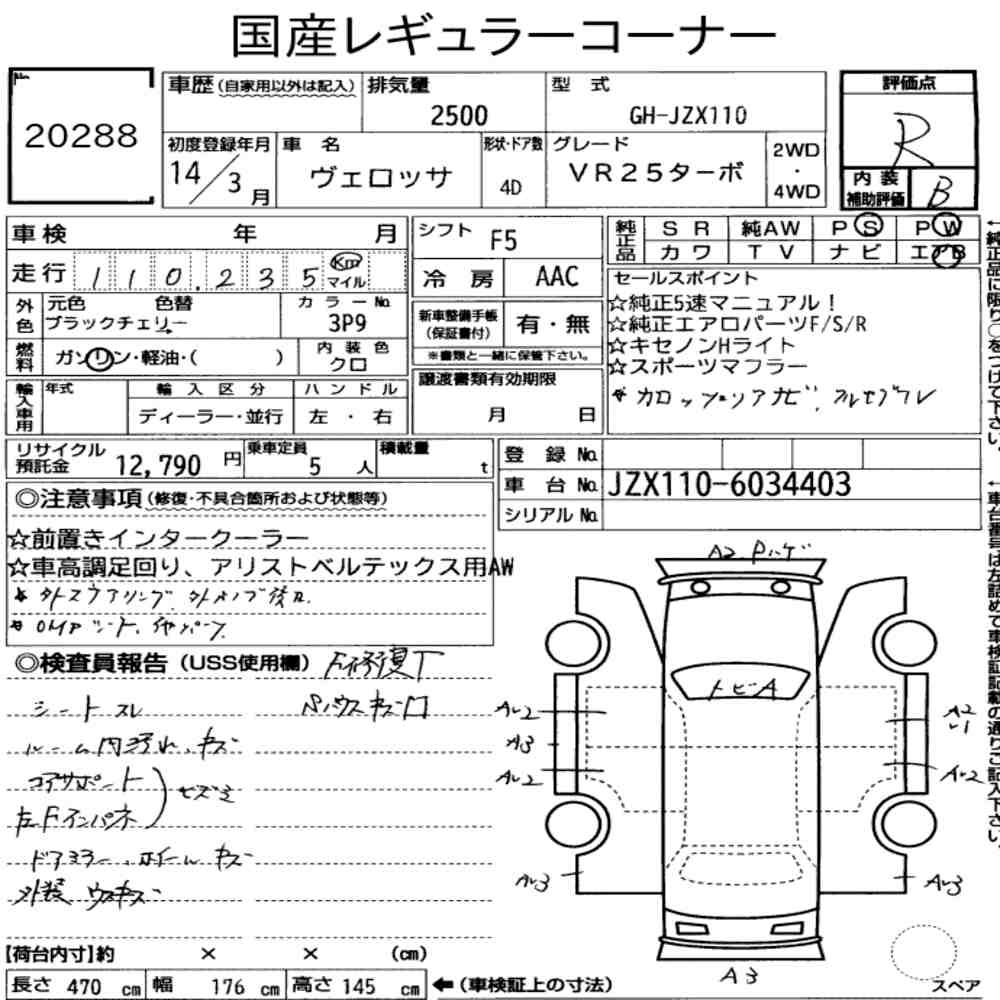 国産レギュラーコーナー
20288
車歴(自家用以外は記入)
排気量
2500
型 式
GH-JZX110
評価点
R
初度登録年月
14/3月
車 名
ヴェロッサ
形状・ドア数
4D
グレード
VR25ターボ
2WD
・
4WD
内装
補助評価
B
車検 年 月
走行 110,235 Km マイル
シフト F5
冷 房 AAC
純正品
SR 純AW PS PW
カワ TV ナビ エアB
外色
元色 色替
ブラックチェリー
カラーNo.
3P9
燃料
ガソリン・軽油・( )
内装色
クロ
新車整備手帳
(保証書付)
有・無
※書類と一緒に保管下さい。
セールスポイント
☆純正5速マニュアル!
☆純正エアロパーツF/S/R
☆キセノンHライト
☆スポーツマフラー
輸入車用
年式
輸入区分
ディーラー・並行
ハンドル
左・右
譲渡書類有効期限
月 日
リサイクル
預託金 12,790 円
乗車定員
5 人
積載量
t
登録 No.
車台 No. JZX110-6034403
シリアル No.
◎注意事項(修復・不具合箇所および状態等)
☆前置きインタークーラー
☆車高調足回り、アリストベルテックス用AW
◎検査員報告(USS使用欄)
シートスレ
ルーム内汚れ、キズ
コアサポート
左Fインパネ
ドアミラー、ホイールキズ
外装 ウスキズ
トビA
A2
A3
A3
【荷台内寸】約 × × (cm)
長さ 470 cm 幅 176 cm 高さ 145 cm
←(車検証上の寸法)
スペア
←純正品に限り○をつけて下さい。
←車台番号は左詰めで車検証記載の通りご記入下さい。